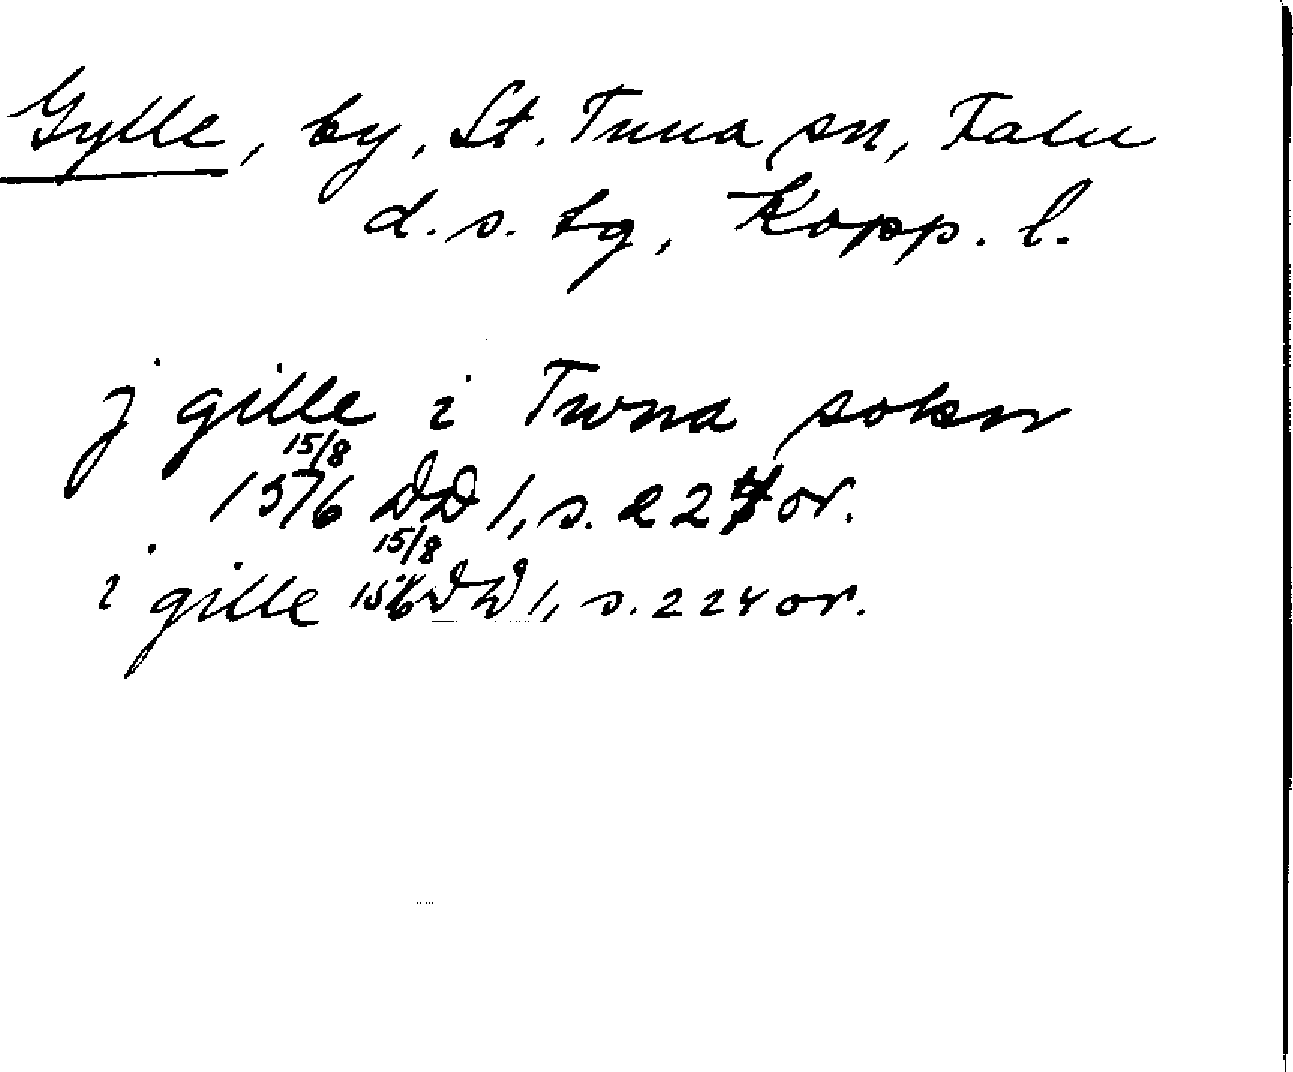 Gylle, by, St. Tuna sn, Falu
d. s. tg, Kopp. l.
j gille i Twna sokn
15/8
1576 DD 1, s. 224 or.
15/8
i gille 1576 DD 1, s. 224 or.